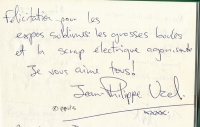 Félicitation pour les
expos sublimes les grosses boules
et la scrap électrique agonisante
Je vous aime tous!
Jean-Philippe Uzel.
xxxx.